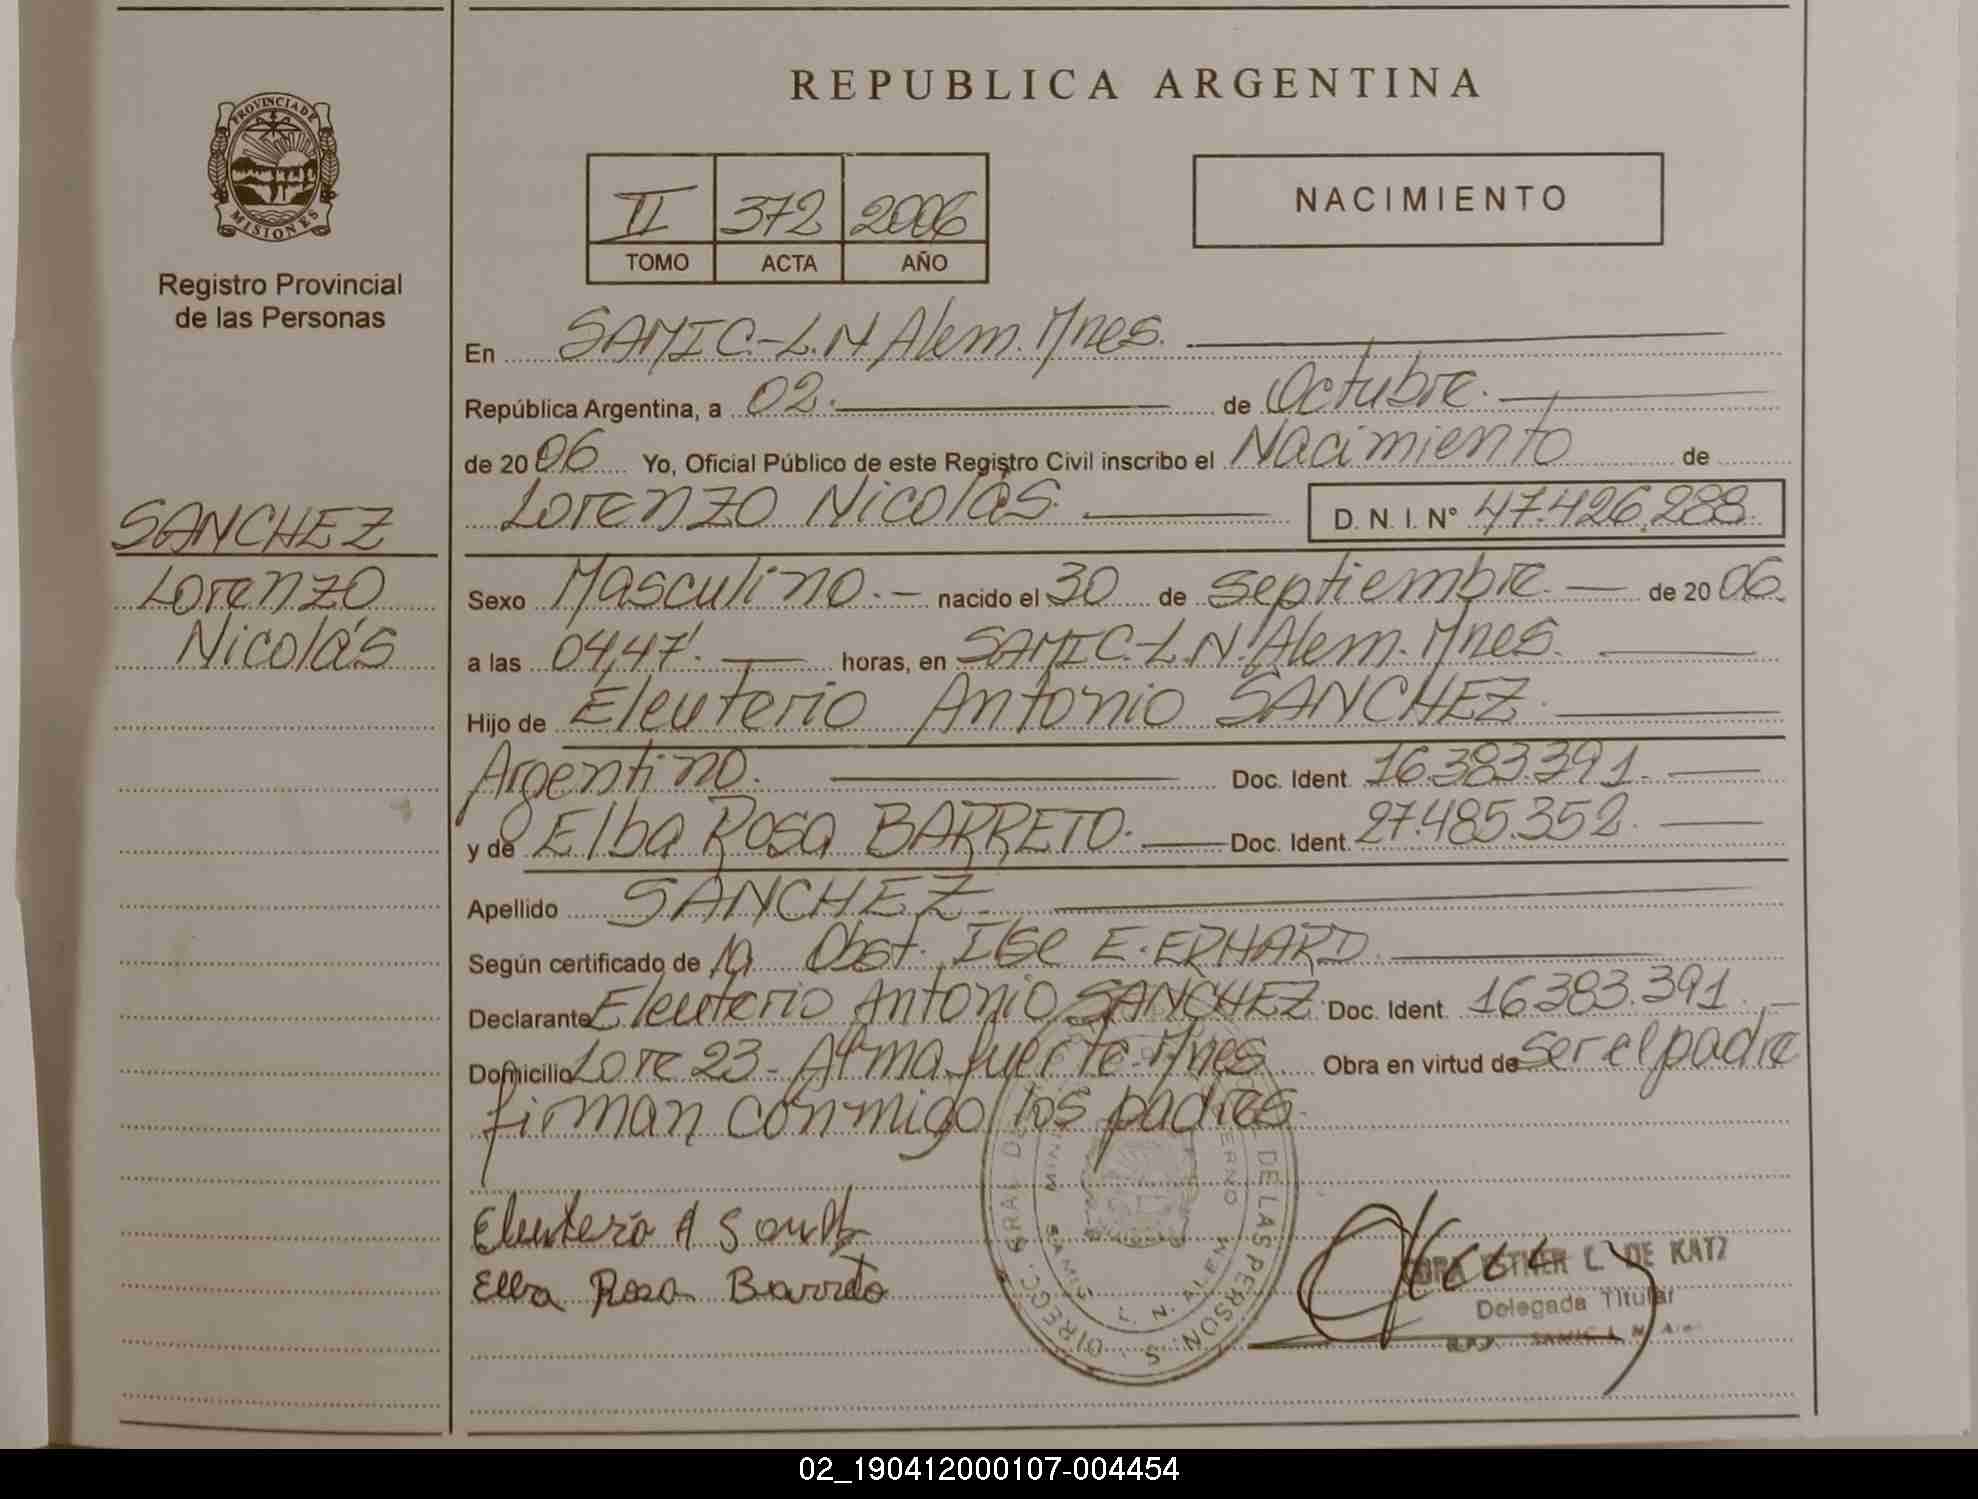 REPUBLICA ARGENTINA
PROVINCIA DE
MISIONES
Registro Provincial
de las Personas
II 372 2006
TOMO ACTA AÑO
NACIMIENTO
En SAMIC-L.N Alem. Mnes.
República Argentina, a 02. de Octubre.
de 20 06 Yo, Oficial Público de este Registro Civil inscribo el Nacimiento de
Lorenzo Nicolás. D. N. I. N° 47.426.288.
SANCHEZ
Lorenzo
Nicolás
Sexo Masculino. nacido el 30 de septiembre. de 20 06.
a las 04,47'. horas, en SAMIC-L.N. Alem. Mnes.
Hijo de Eleuterio Antonio SANCHEZ.
Argentino. Doc. Ident. 16.383.391.
y de Elba Rosa BARRETO. Doc. Ident. 27.485.352.
Apellido SANCHEZ
Según certificado de la Obst. Ilse E. ERHARD.
Declarante Eleuterio Antonio SANCHEZ Doc. Ident. 16383.391.
Domicilio Lote 23 - Arma fuerte. Mnes Obra en virtud de ser el padre
firman conmigo los padres.
Eleuterio A
Elba Rosa Barreto
ESTHER L. DE KATZ
Delegada Titular
SAMIC L. N.
DIRECC. GRAL DE LAS PERSON. S
SAMIC L. N. ALEM
02_190412000107-004454